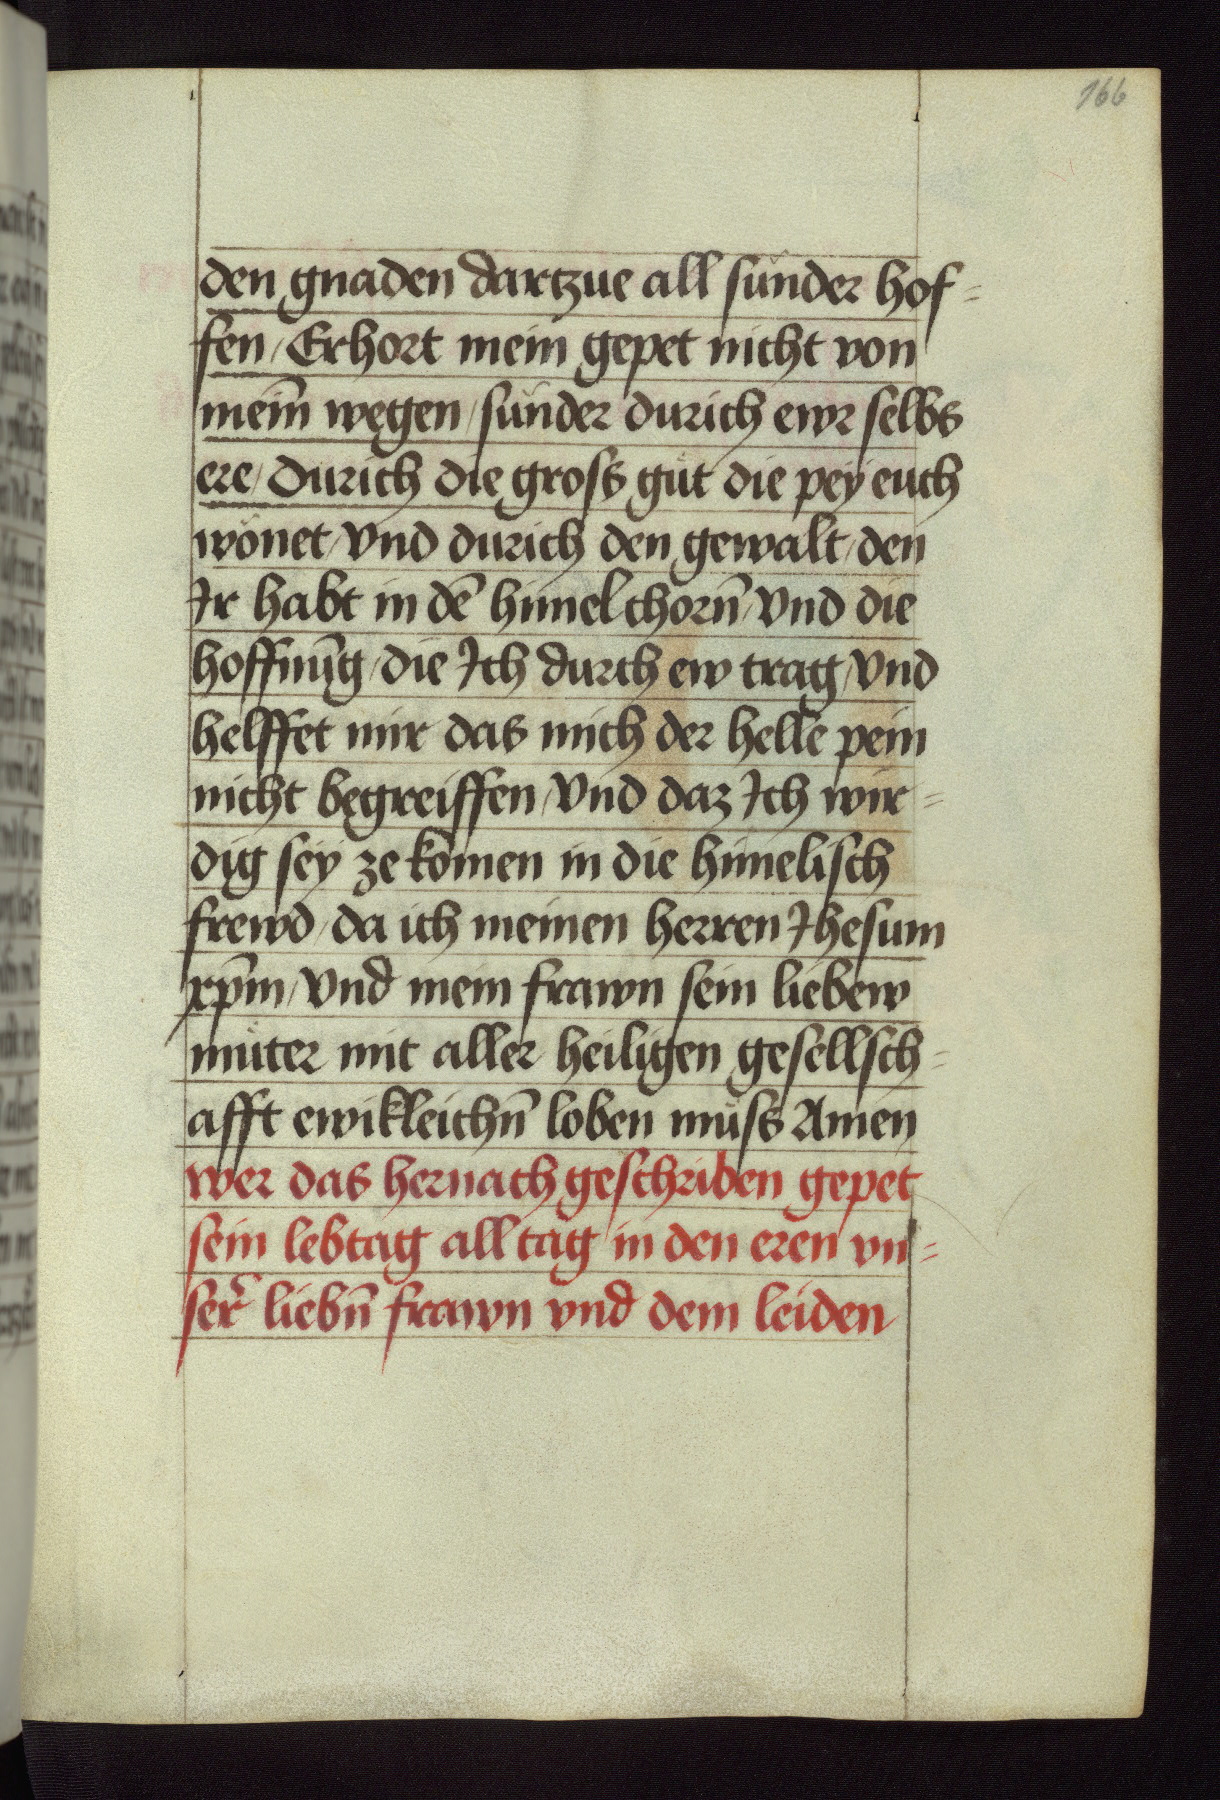 166
den gnaden dartzue all sünder hof=
fen / Erhort mein gepet nicht von
mein̄ wegen / sünder durich ewr selbs
ere / durich die gross güt die pey euch
wönet / Vnd durich den gewalt / den
Ir habt in dē himel chorn̄ / Vnd die
hoffnūg / die Ich durch ew trag / Vnd
helffet mir das mich der helle pein
nicht begreiffen / Vnd daz Ich wir=
dig sey ze komen in die himelisch
frewd / da ich meinen herren Jhesum
xp̄m / Vnd mein frawn sein liebew
müter mit aller heiligen gesellsch=
afft ewikleichn̄ loben müss Amen
wer das hernach geschriben gepet
sein lebtag all tag in den eren vn=
ser̄ liebn̄ frawn vnd dem leiden